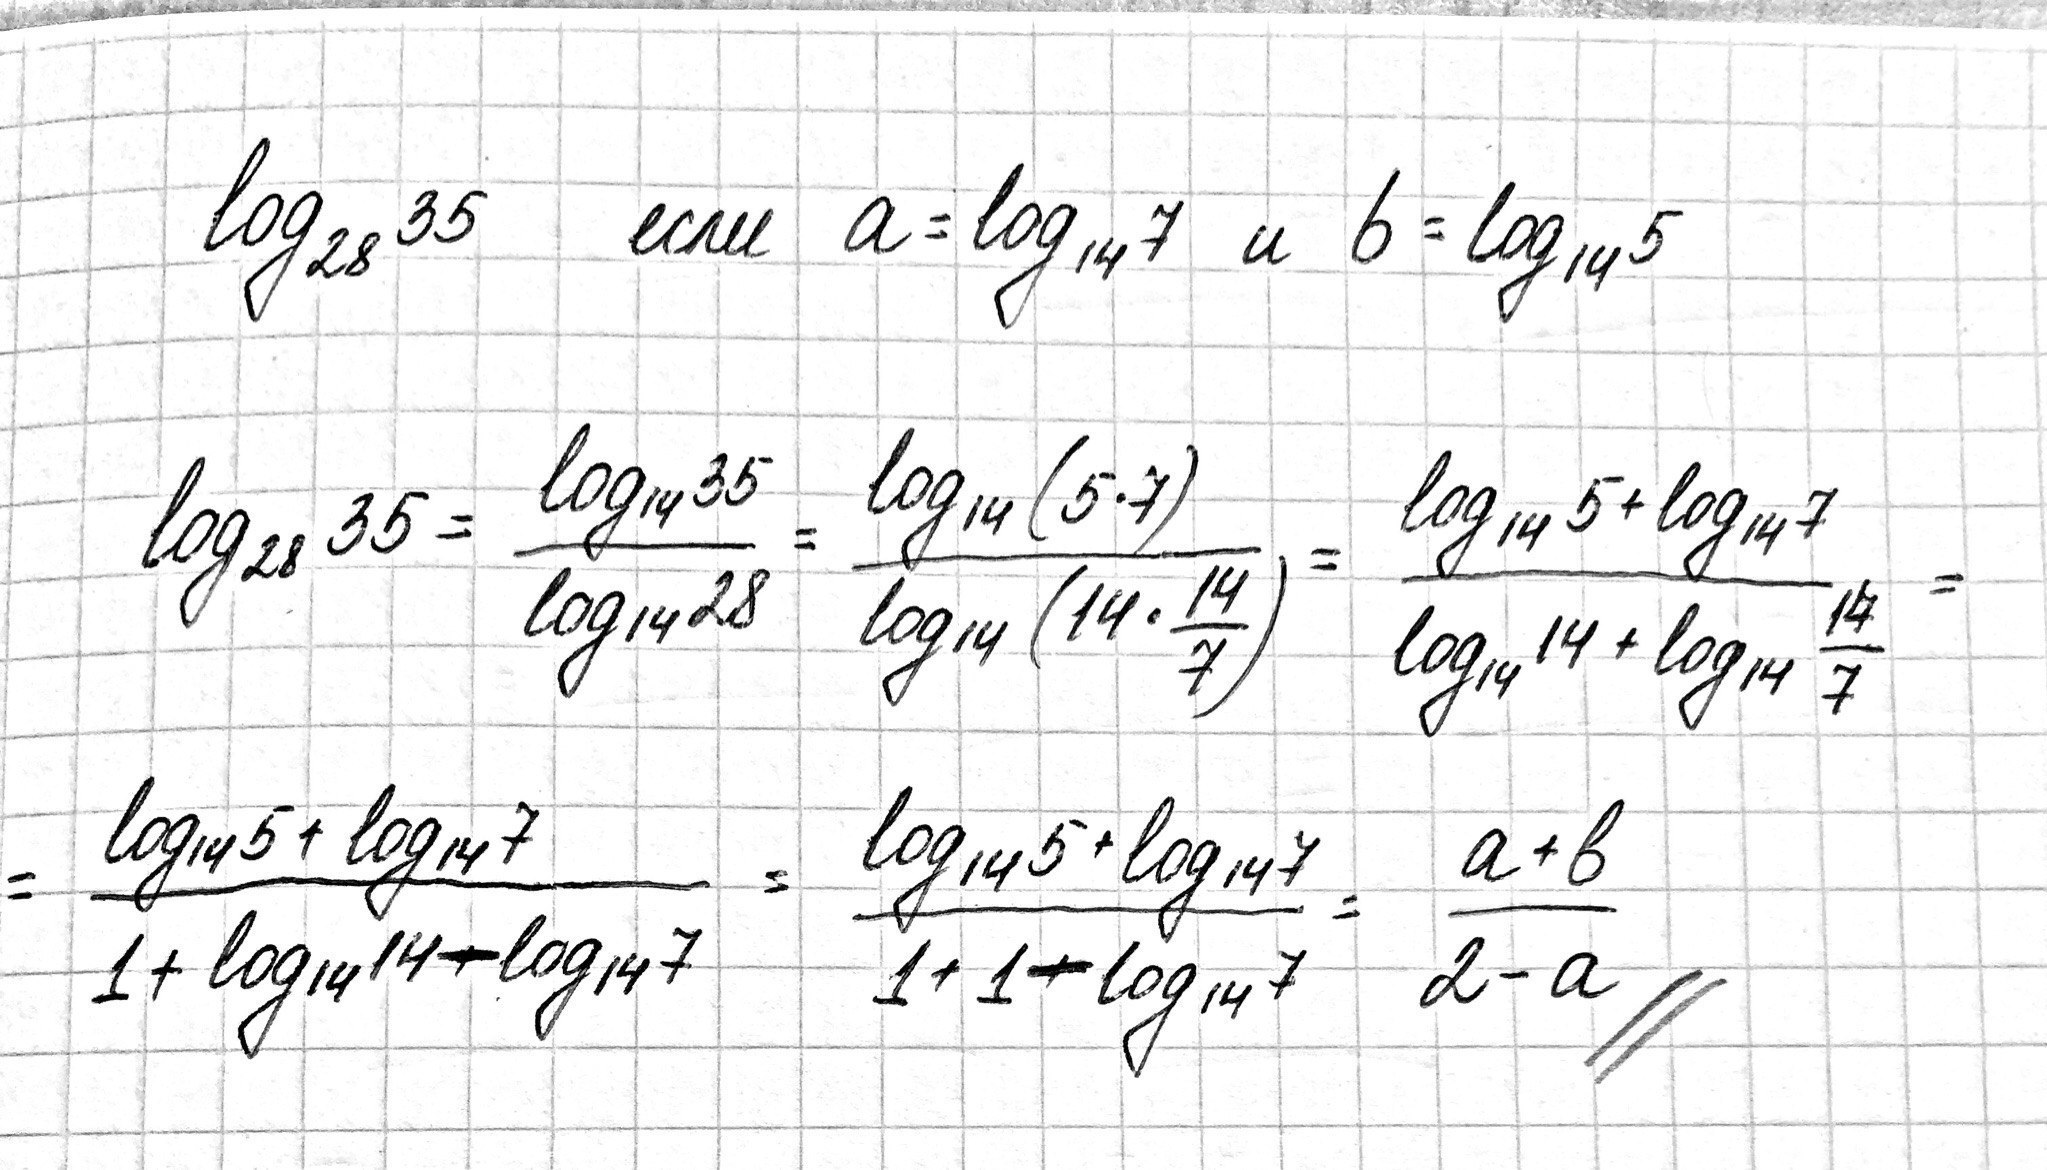 log₂₈35 если a = log₁₄7 и b = log₁₄5
log₂₈35 = log₁₄35 / log₁₄28 = log₁₄(5·7) / log₁₄(14·14/7) = (log₁₄5 + log₁₄7) / (log₁₄14 + log₁₄ 14/7) =
= (log₁₄5 + log₁₄7) / (1 + log₁₄14 - log₁₄7) = (log₁₄5 + log₁₄7) / (1 + 1 - log₁₄7) = (a + b) / (2 - a) //